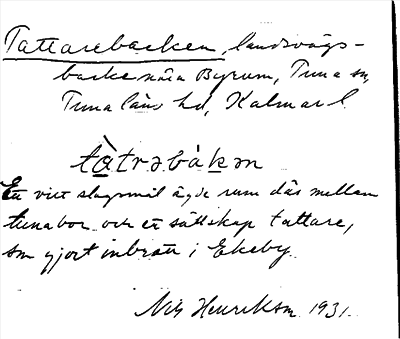 Tattarebacken, landsvägs-
backe nära Byrum, Tuna sn,
Tunaläns hd, Kalmar l.
tàtrəbàkən
Ett vilt slagsmål ägde rum där mellan
tunabor och ett sällskap tattare,
som gjort inbrott i Ekeby.
Nils Henriksson 1931.